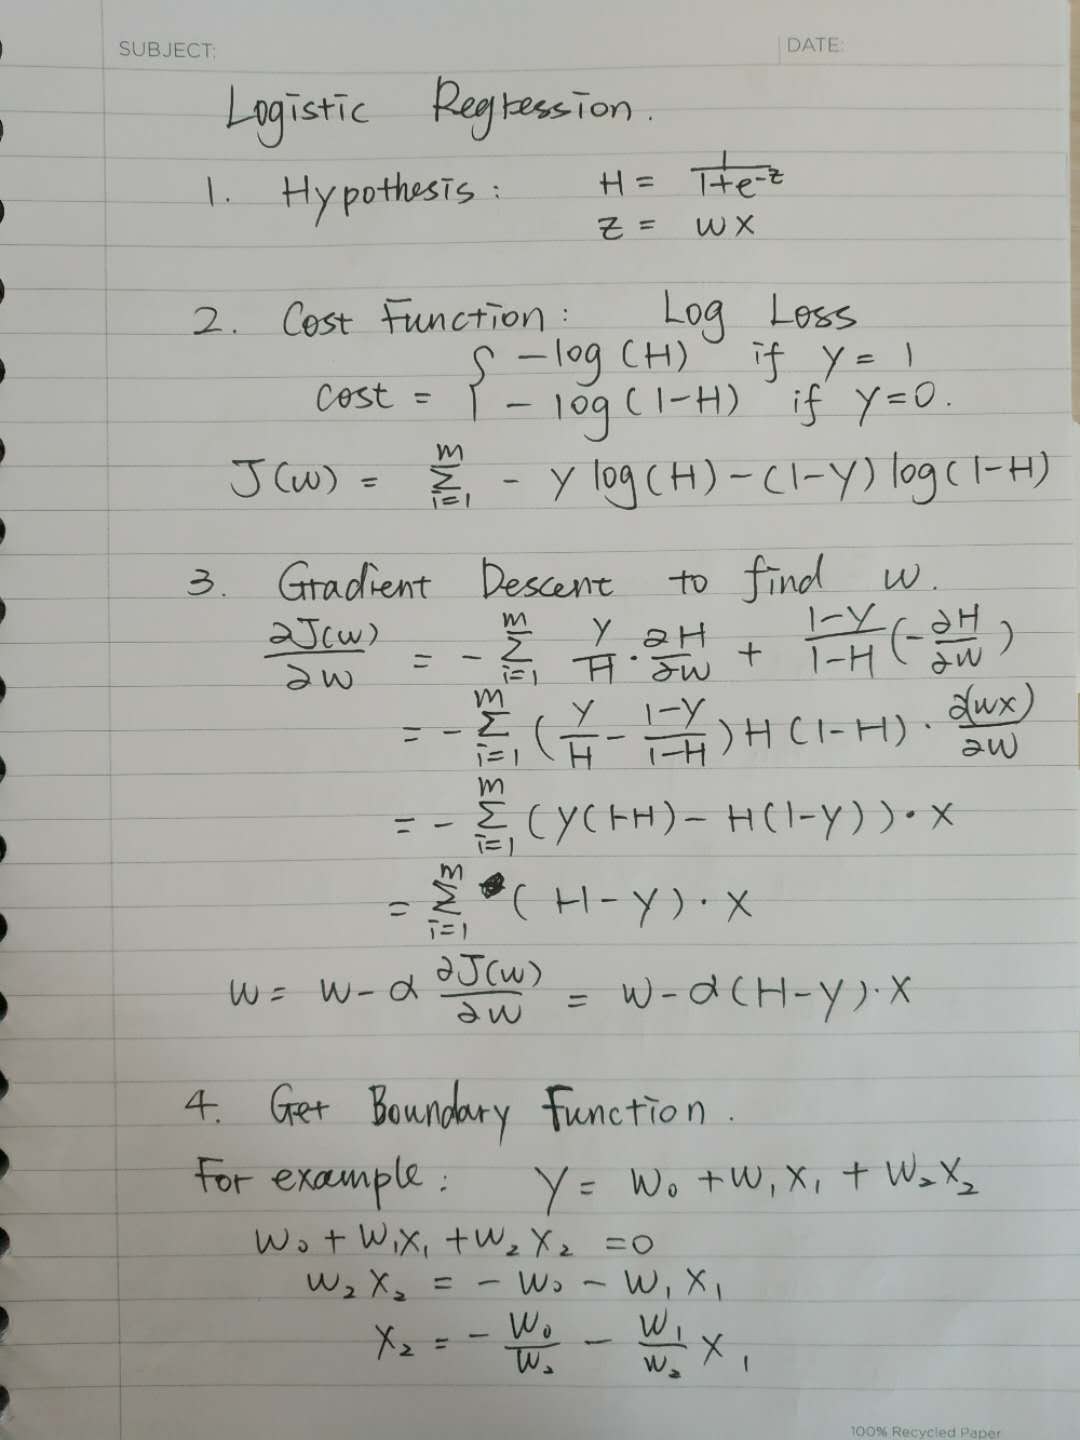 SUBJECT:
DATE:
Logistic Regression.
1. Hypothesis: H = 1/(1+e^-z)
z = wx
2. Cost Function: Log Loss
cost = { -log(H) if Y = 1
- log(1-H) if Y=0.
J(w) = Σ_{i=1}^{m} - Y log(H) - (1-Y) log(1-H)
3. Gradient Descent to find w.
∂J(w)/∂w = - Σ_{i=1}^{m} Y/H · ∂H/∂w + (1-Y)/(1-H) (-∂H/∂w)
= - Σ_{i=1}^{m} (Y/H - (1-Y)/(1-H)) H(1-H) · ∂(wx)/∂w
= - Σ_{i=1}^{m} (Y(1-H) - H(1-Y)) · X
= Σ_{i=1}^{m} (H-Y) · X
w = w - α ∂J(w)/∂w = w - α(H-Y)·X
4. Get Boundary Function.
For example: Y = W₀ + W₁X₁ + W₂X₂
W₀ + W₁X₁ + W₂X₂ = 0
W₂X₂ = - W₀ - W₁X₁
X₂ = - W₀/W₂ - W₁/W₂ X₁
100% Recycled Paper